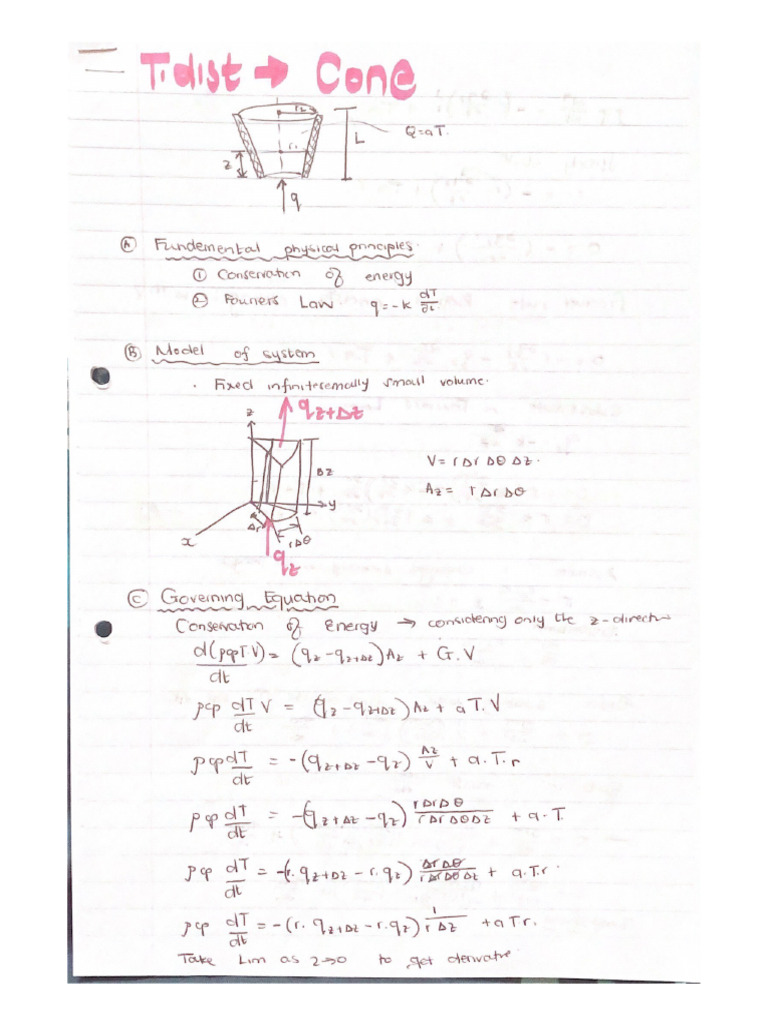 T. dist → Cone
r₂
r₁
L
Q=aT.
z
q
Ⓐ Fundemental physical principles.
① Conservation of energy
② Fouriers Law q=-k dT/dt.
Ⓑ Model of system
. Fixed infinitesemally small volume.
q_{z+Δz}
z
Δz
V= rΔrΔθΔz.
A_z= rΔrΔθ
y
Δr
rΔθ
x
q_z
Ⓒ Governing Equation
Conservation of Energy → considering only the z-direct
d(ρcpTV)/dt = (q_z - q_{z+Δz})A_z + G.V
ρcp dT/dt V = (q_z - q_{z+Δz})A_z + aT.V
ρcp dT/dt = -(q_{z+Δz} - q_z) A_z/V + a.T.r
ρcp dT/dt = -(q_{z+Δz} - q_z) rΔrΔθ/rΔrΔθΔz + a.T.
ρcp dT/dt = -(r.q_{z+Δz} - r.q_z) ΔrΔθ/rΔrΔθΔz + a.Tr.
ρcp dT/dt = -(r.q_{z+Δz} - r.q_z) 1/rΔz + aTr.
Take Lim as z→0 to get derivative